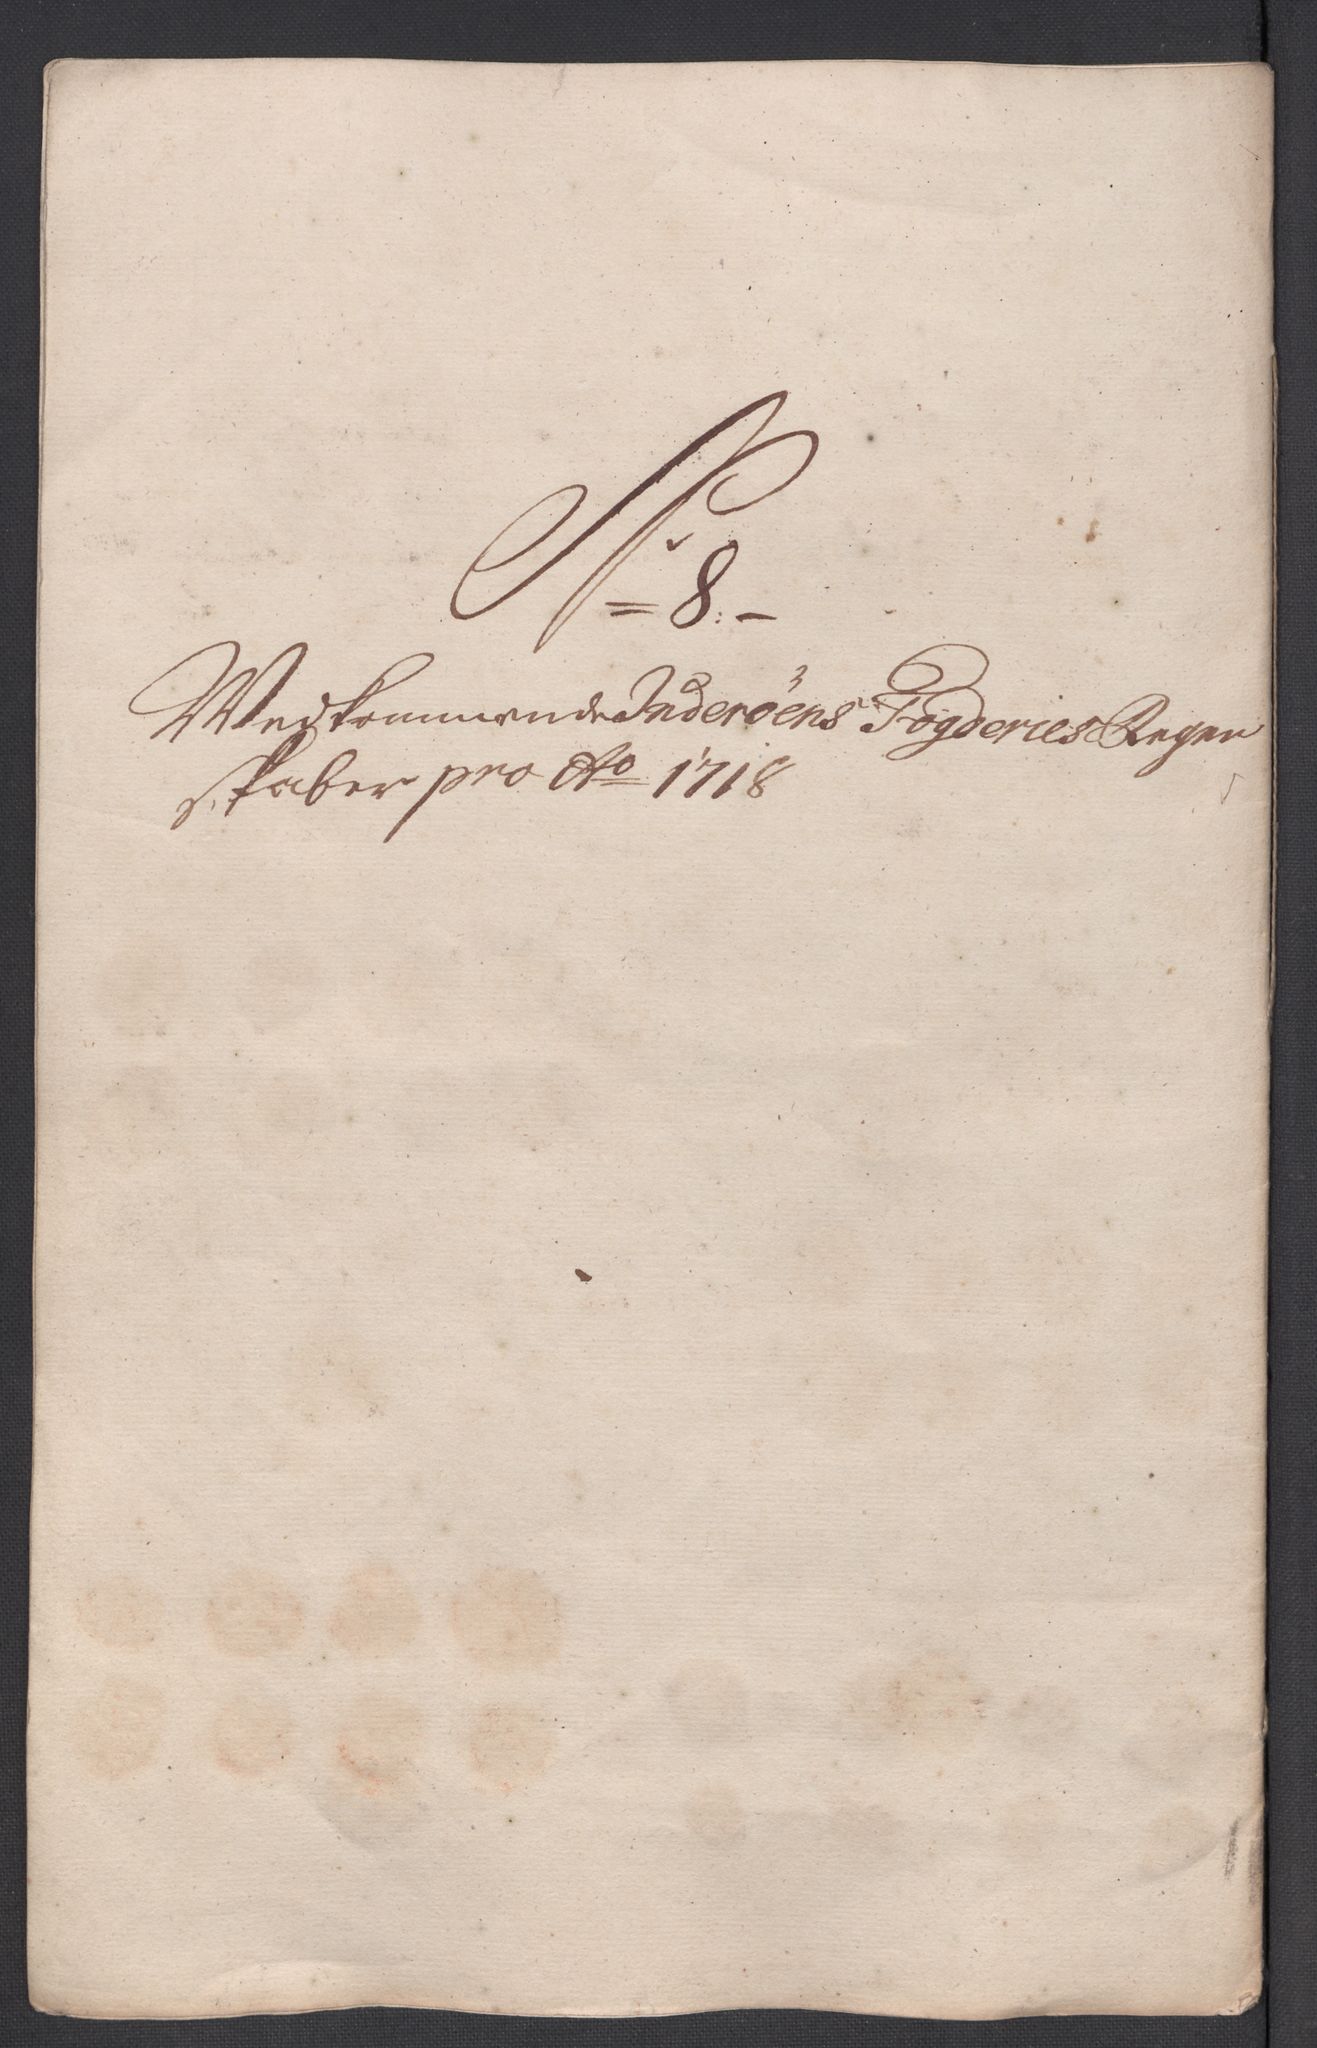 N
= 8: -
Wedkommende Inderöens Fögderies Regen
skaber pro Ao 1718